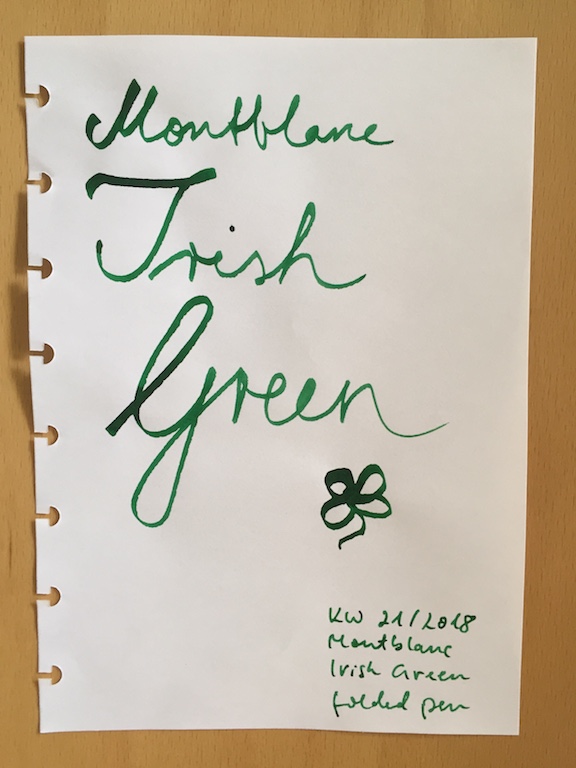 Montblanc
Irish
Green
KW 21/2018
Montblanc
Irish Green
folded pen